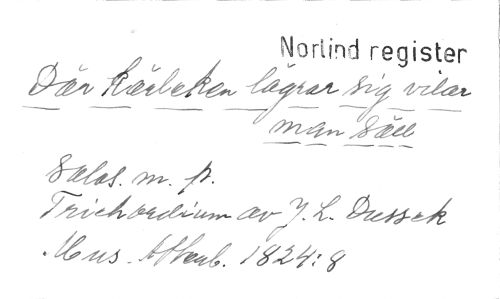 Norlind register
Där kärleken lägrar sig vilar
man säll
Solos. m. p.
Trichordium av J. L. Dussek
Mus. Aftonb. 1824:8